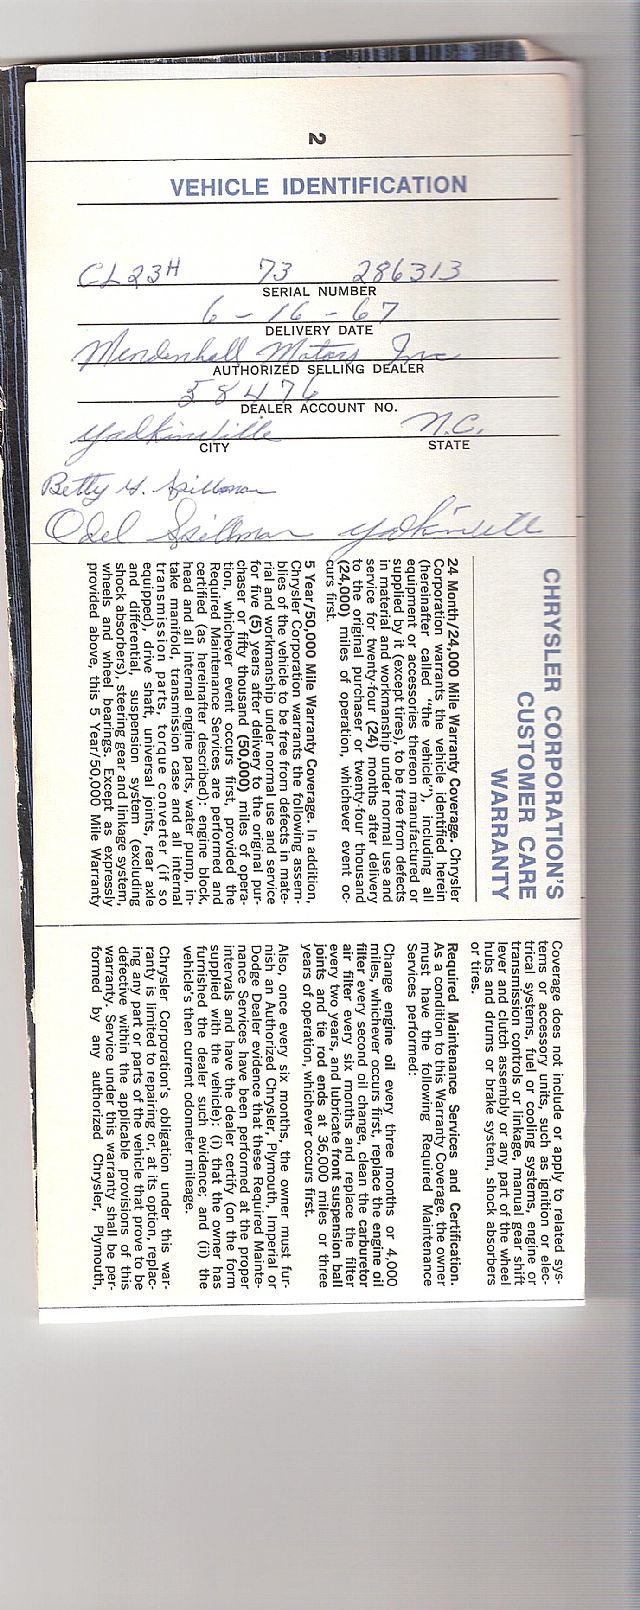 2
VEHICLE IDENTIFICATION
CL23H 73 286313
SERIAL NUMBER
6-16-67
DELIVERY DATE
Mendenhall Motors Inc
AUTHORIZED SELLING DEALER
58476
DEALER ACCOUNT NO.
Yadkinville N.C.
CITY STATE
Betty G. Spillman
Odel Spillman Yadkinville
CHRYSLER CORPORATION'S
CUSTOMER CARE
WARRANTY
24 Month/24,000 Mile Warranty Coverage. Chrysler
Corporation warrants the vehicle identified herein
(hereinafter called "the vehicle"), including all
equipment or accessories thereon manufactured or
supplied by it (except tires), to be free from defects
in material and workmanship under normal use and
service for twenty-four (24) months after delivery
to the original purchaser or twenty-four thousand
(24,000) miles of operation, whichever event oc-
curs first.
5 Year/50,000 Mile Warranty Coverage. In addition,
Chrysler Corporation warrants the following assem-
blies of the vehicle to be free from defects in mate-
rial and workmanship under normal use and service
for five (5) years after delivery to the original pur-
chaser or fifty thousand (50,000) miles of opera-
tion, whichever event occurs first, provided the
Required Maintenance Services are performed and
certified (as hereinafter described): engine block,
head and all internal engine parts, water pump, in-
take manifold, transmission case and all internal
transmission parts, torque converter (if so
equipped), drive shaft, universal joints, rear axle
and differential, suspension system (excluding
shock absorbers), steering gear and linkage system,
wheels and wheel bearings. Except as expressly
provided above, this 5 Year/50,000 Mile Warranty
Coverage does not include or apply to related sys-
tems or accessory units, such as ignition or elec-
trical systems, fuel or cooling systems, engine or
transmission controls or linkage, manual gear shift
lever and clutch assembly or any part of the wheel
hubs and drums or brake system, shock absorbers
or tires.
Required Maintenance Services and Certification.
As a condition to this Warranty Coverage, the owner
must have the following Required Maintenance
Services performed:
Change engine oil every three months or 4,000
miles, whichever occurs first, replace the engine oil
filter every second oil change, clean the carburetor
air filter every six months and replace the filter
every two years, and lubricate front suspension ball
joints and tie rod ends at 36,000 miles or three
years of operation, whichever occurs first.
Also, once every six months, the owner must fur-
nish an Authorized Chrysler, Plymouth, Imperial or
Dodge Dealer evidence that these Required Mainte-
nance Services have been performed at the proper
intervals and have the dealer certify (on the form
supplied with the vehicle): (i) that the owner has
furnished the dealer such evidence; and (ii) the
vehicle's then current odometer mileage.
Chrysler Corporation's obligation under this war-
ranty is limited to repairing or, at its option, replac-
ing any part or parts of the vehicle that prove to be
defective within the applicable provisions of this
warranty. Service under this warranty shall be per-
formed by any authorized Chrysler, Plymouth,